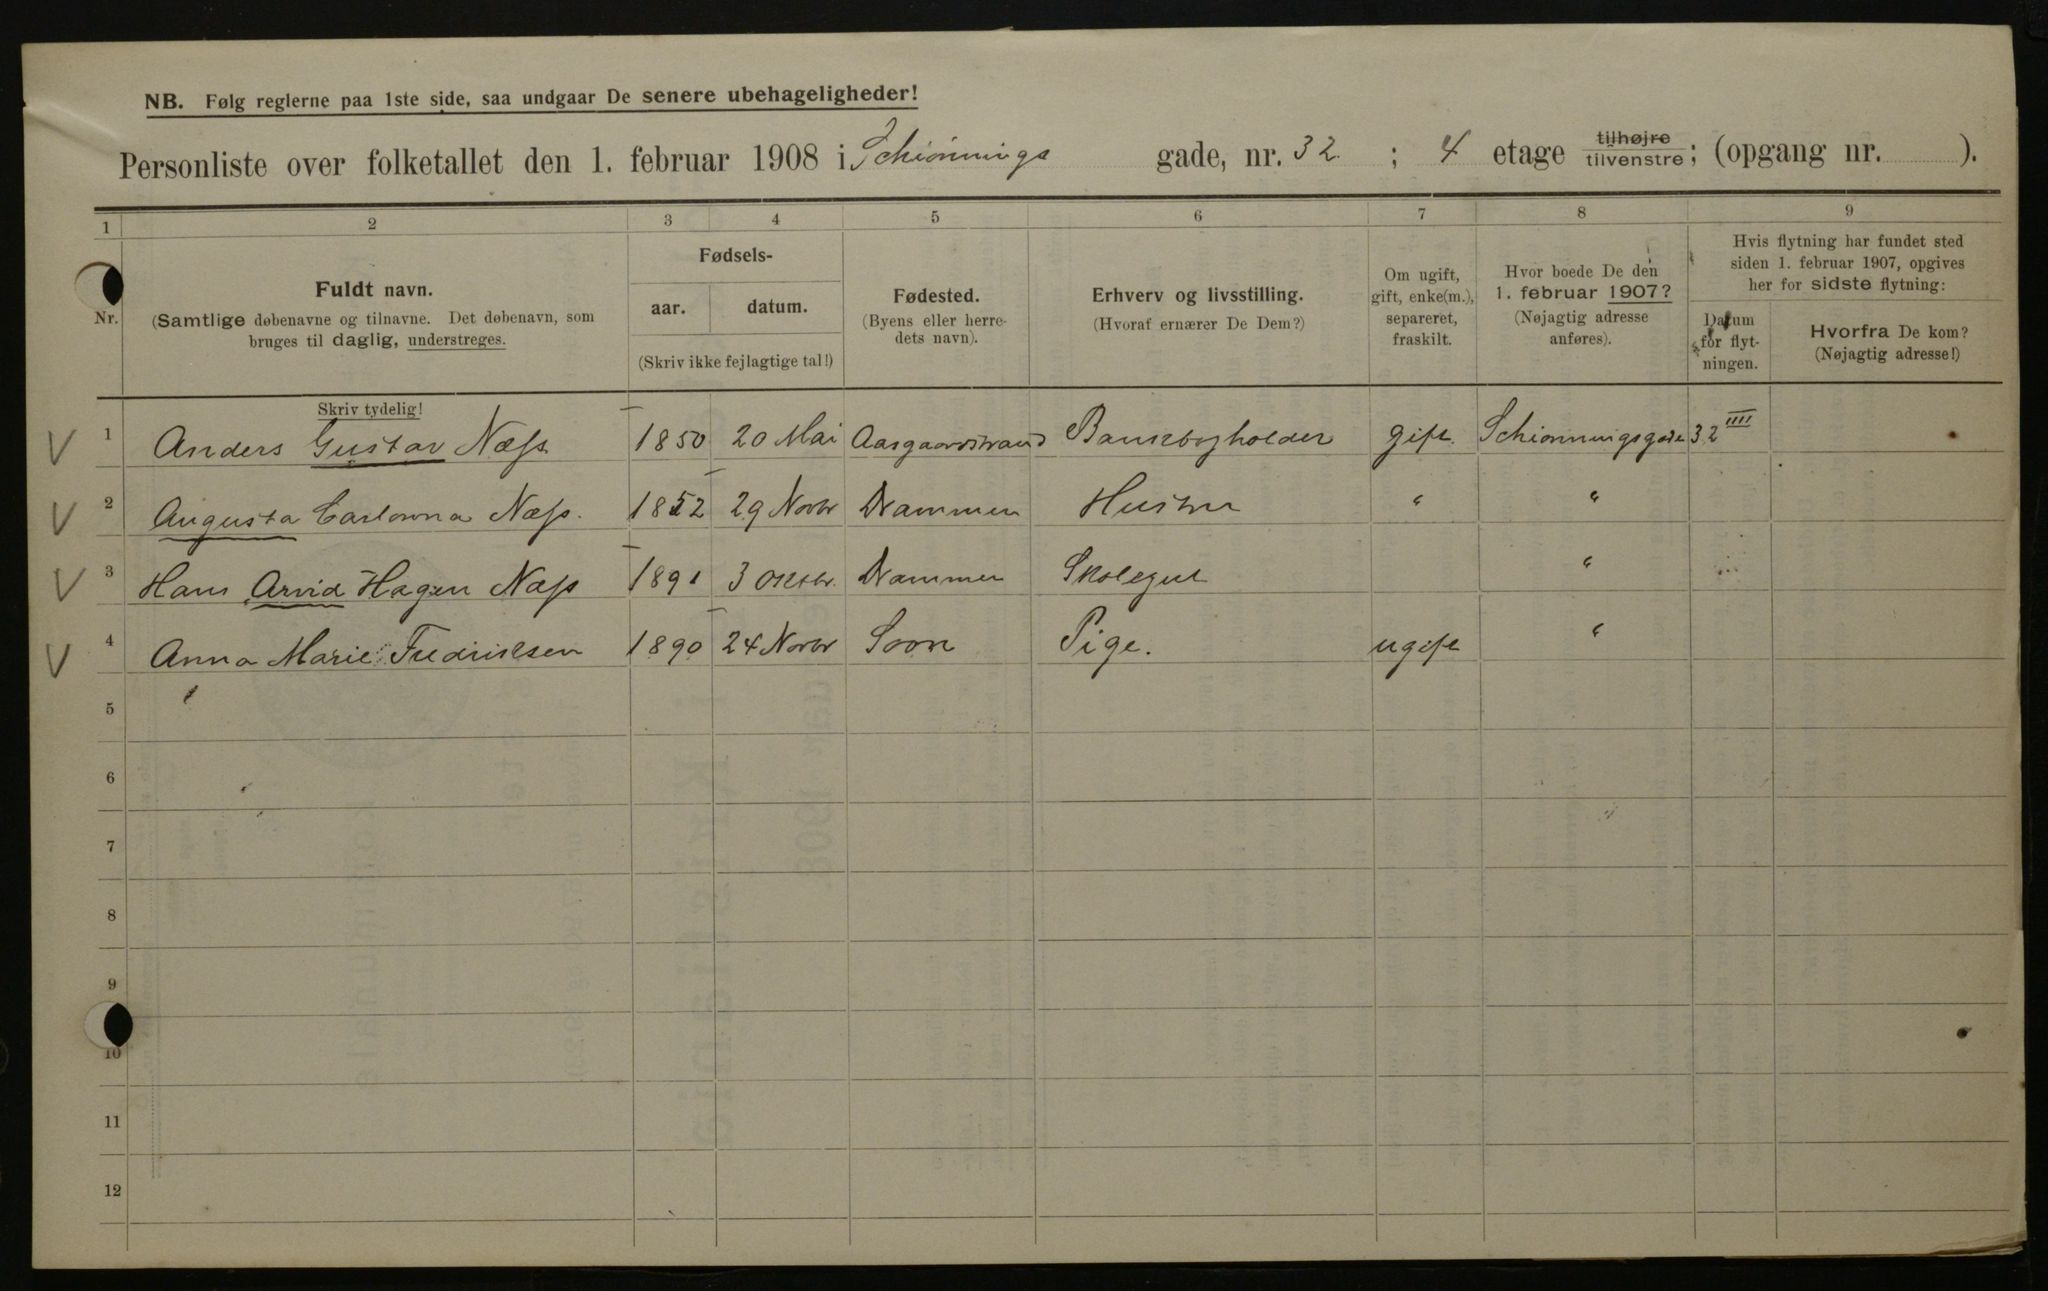 NB. Følg reglerne paa 1ste side, saa undgaar De senere ubehageligheder!
Personliste over folketallet den 1. februar 1908 i Schiønnings gade, nr. 32 ; 4 etage tilhøjre tilvenstre; (opgang nr. ).
1 2 3 4 5 6 7 8 9
Nr.
Fuldt navn.
(Samtlige døbenavne og tilnavne. Det døbenavn, som
bruges til daglig, understreges.
Skriv tydelig!
Fødsels-
aar. datum.
(Skriv ikke fejlagtige tal!)
Fødested.
(Byens eller herre-
dets navn).
Erhverv og livsstilling.
(Hvoraf ernærer De Dem?)
Om ugift,
gift, enke(m.),
separeret,
fraskilt.
Hvor boede De den
1. februar 1907?
(Nøjagtig adresse
anføres).
Hvis flytning har fundet sted
siden 1. februar 1907, opgives
her for sidste flytning:
Datum
for flyt-
ningen.
Hvorfra De kom?
(Nøjagtig adresse!)
V 1 Anders Gustav Næss 1850 20 Mai Aasgaardstrand Bankbogholder gift. Schiønningsgade 32 IIII
V 2 Augusta Næss. 1852 29 Novbr Drammen Hustru " "
V 3 Hans Arvid Hagen Næss 1891 3 Oktbr. Drammen Skolegut "
V 4 Anna Marie Fredriksen 1890 24 Novbr Soon Pige. ugift "
5
6
7
8
9
10
11
12